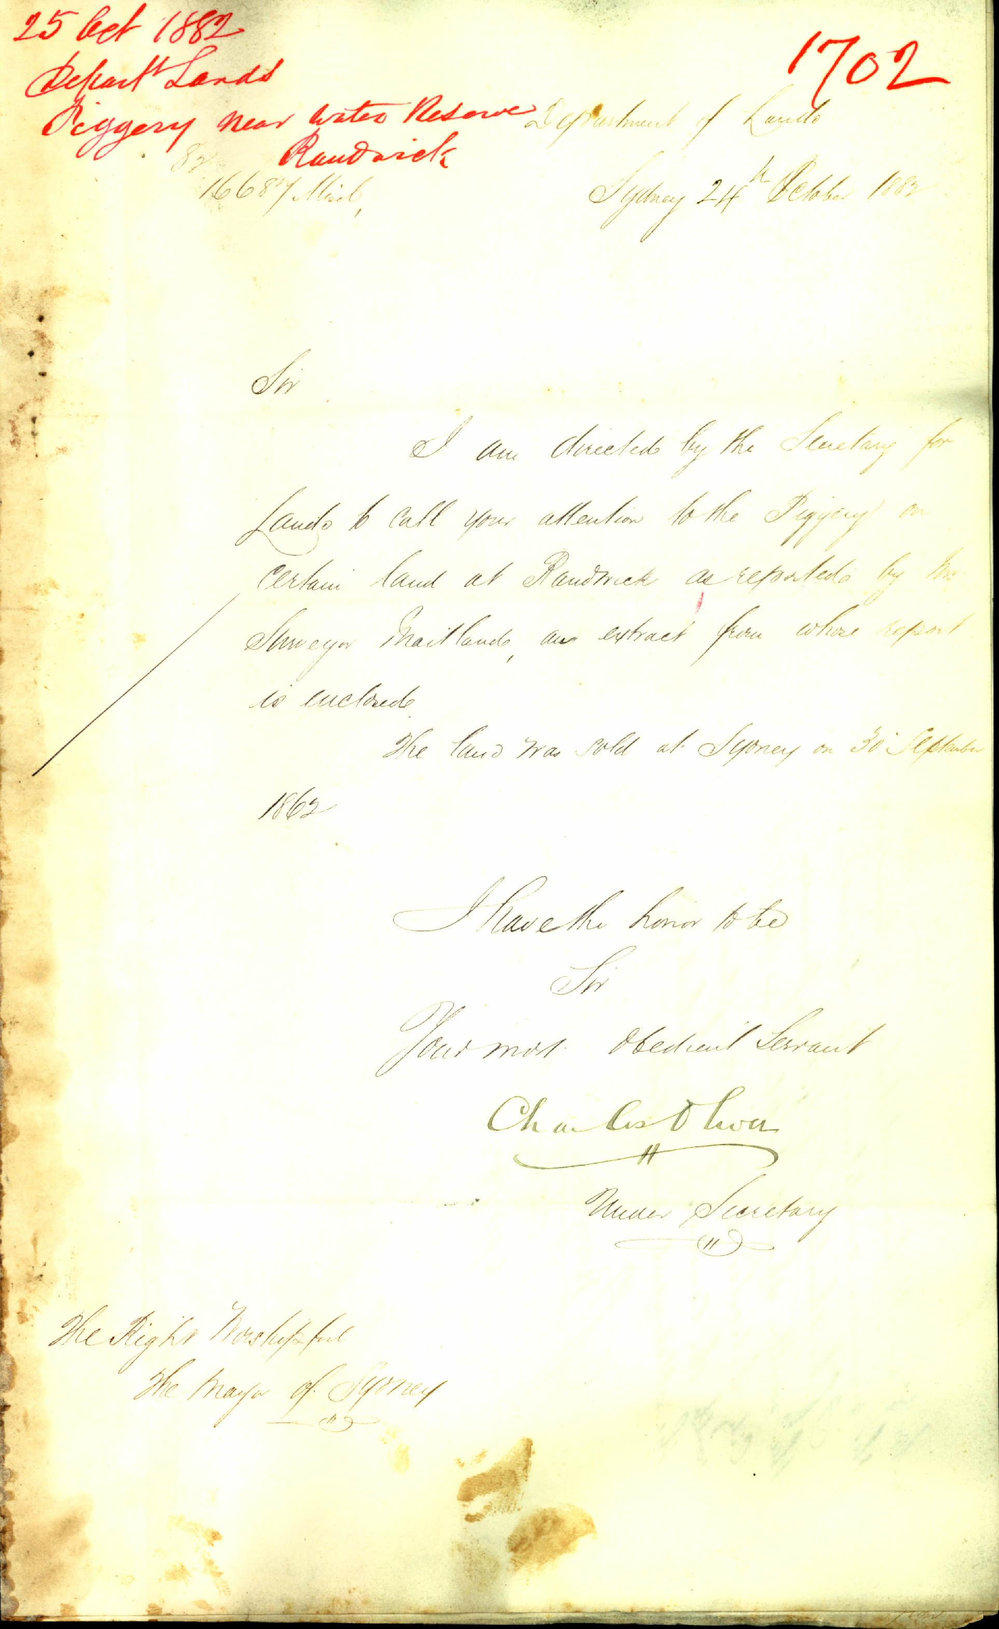 25 Oct 1882
Depart<sup>t</sup> Lands
Piggery near Water Reserve
Randwick
1702
Department of Lands
82
16687 Misc,
Sydney 24<sup>th</sup> October 1882
Sir
I am directed by the Secretary for
Lands to call your attention to the Piggery on
certain land at Randwick as reported by Mr
Surveyor Maitland, an extract from whose report
is enclosed
The land was sold at Sydney on 30 September
1862
I have the honor to be
Sir
Your most Obedient Servant
Charles Oliver
Under Secretary
The Right Worshipful
The Mayor of Sydney